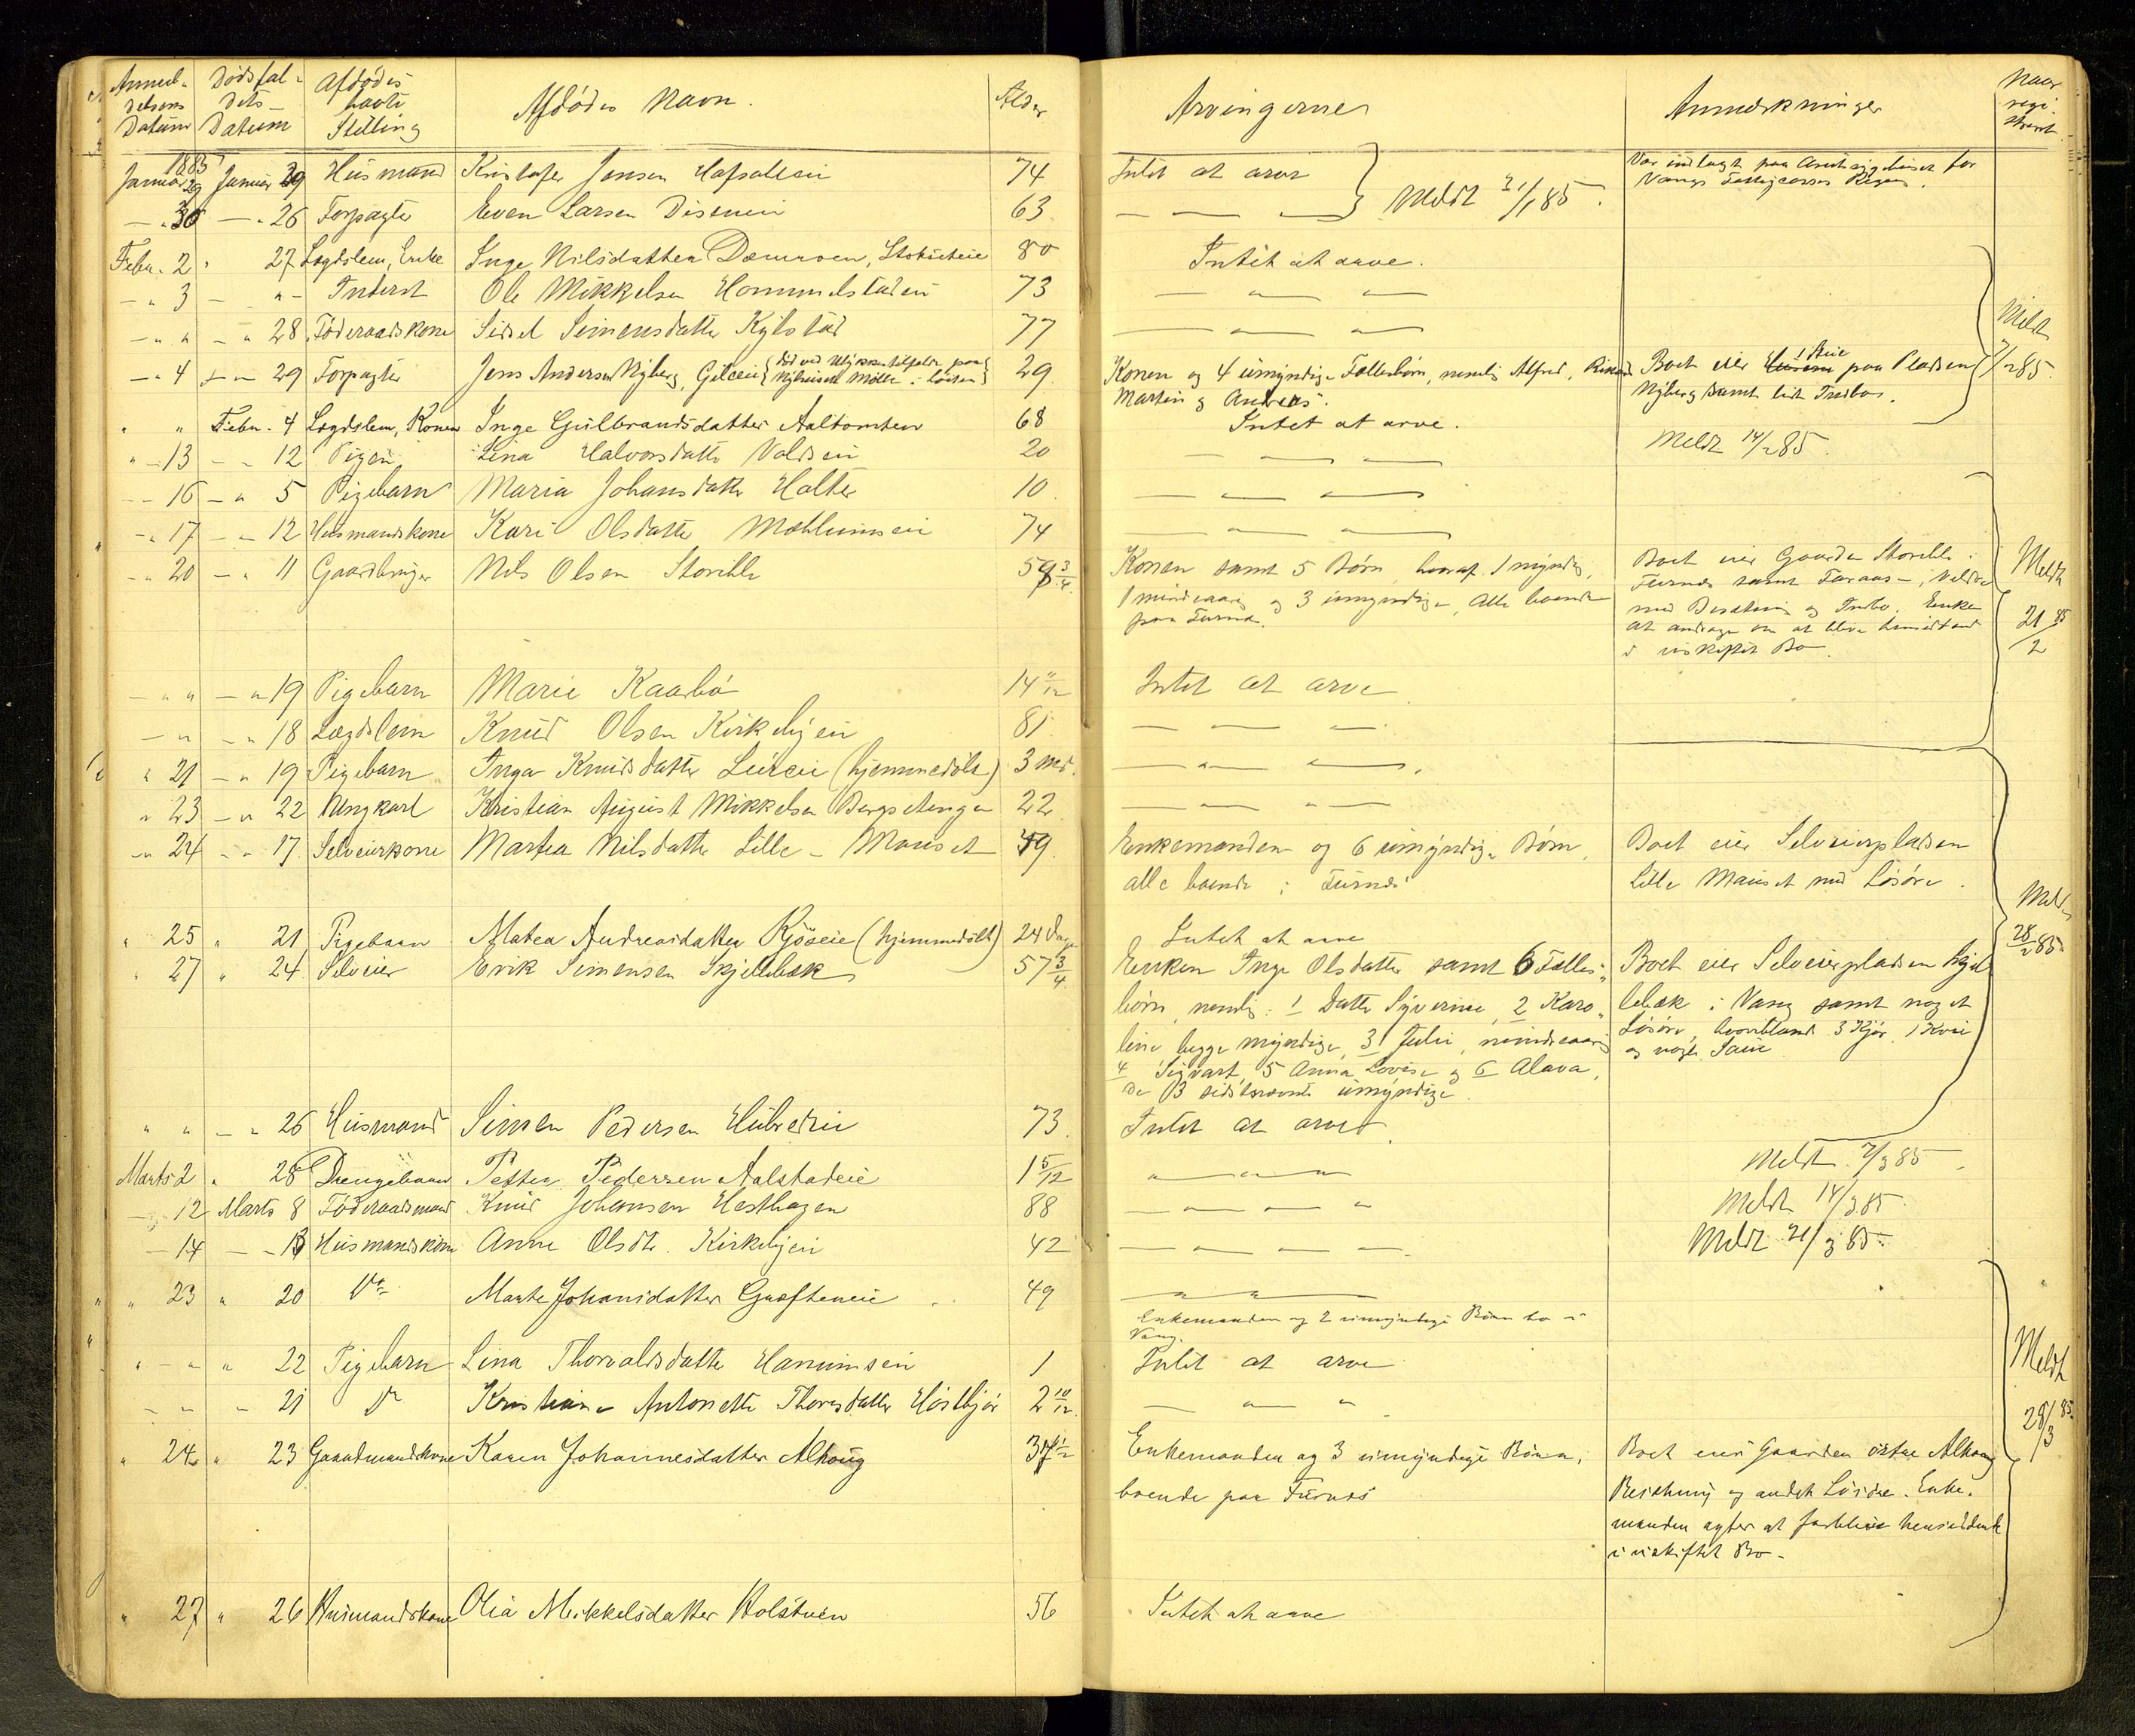 Anmel- Dødsfal- Afdødes
delsens dets- havte Afdødes Navn. Alder Arvingerne Anmærkninger Naar regi-
Datum Datum Stilling strert
1885
Januar 29 Januar 29 Husmand Kristofer Jensen 74 Intet at arve Var indlagt paa Arbeidsanstalten for
Vangs Fattigcasses Regn.
— " 30 — " 26 Forpagter Even Larsen Disenei 63 — — — Meldt 31/1 85.
Febr. 2 " 27 Lægdslem, Enke Inge Nilsdatter Dæmroen, 80 Intet at arve.
— " 3 — " - Inderst Ole Mikkelsen Hommelstadei 73 — " —
— " " — " 28 Föderaadskone Sidsel Simensdatter Kylstad 77 — " — Meldt
— " 4 — " 29 Forpagter Jens Andersen Nyberg, {död ved Ulykkestilfælde paa Mölle i Löiten} 29 Konen og 4 umyndige Fællesbörn, nemlig Alfred, Rikard Boet eier Huseie paa Pladsen 7/2 85.
Martin og Andreas. Nyberg samt lidt Indbo.
" " Febr. 4 Lægdslem, Konen Inge Gulbrandsdatter Aaltomten 68 Intet at arve.
" — 13 — " 12 Pigen Lina Halvorsdatter Voldsei 20 — " — Meldt 14/2 85.
— — 16 — " 5 Pigebarn Maria Johansdatter Holter 10 — " —
— " 17 — " 12 Husmandskone Kari Olsdatter Mæhlumsei 74 — " —
— " 20 — " 11 Gaardbruger Nils Olsen Storihle 59 3/4 Konen samt 5 Börn hvoraf 1 myndig, Boet eier Gaarden Storihle i Meldt
1 mindreaarig og 3 umyndige, Alle boende Furnæs samt
paa Furnæs. med Besætning og Indbo. Enken 21/2 85
at andrage om at blive hensiddende
i uskiftet Bo.
— " " — " 19 Pigebarn Marie Kaarbö 14 11/12 Intet at arve
— " — " 18 Lægdslem Knud Olsen Kirkebyei 81 — — —
" 21 — " 19 Pigebarn Inga Knudsdatter (hjemmedöbt) 3 Md. — " —
" 23 — " 22 Ungkarl Kristian August Mikkelsen Bergsengen 22 — — " —
— " 24 — " 17 Selveierkone Martea Nilsdatter Lille-Mauset 49 Enkemanden og 6 umyndige Börn, Boet eier Selveierpladsen
alle boende i Furnæs Lille Mauset med Lösöre.
" 25 " 21 Pigebarn Matea Andreasdatter Kjöseie (hjemmedöbt) 24 Dage Intet at arve Meldt 28/2 85.
" 27 " 24 Selveier Erik Simensen Skjellebæk 57 3/4 Enken Inge Olsdatter samt 6 Fælles- Boet eier Selveierpladsen Skjel-
börn, nemlig: 1 Datter Syverine, 2 Karo- lebæk i Vang samt noget
line begge myndige, 3 Juli, mindreaarig Lösöre, hvoriblandt 3 Kjör, 1 Kvie
4 Sigvart, 5 Anna Lovise og 6 Alava, og nogle Sauer
de 3 sidstnævnte umyndige.
" " — " 26 Husmand Simen Pedersen 73 Intet at arve
Marts 2 " 28 Drengebarn Petter Pedersen Aalstadeie 1 5/12 " — " — " Meldt 7/3 85
— " 12 Marts 8 Föderaadsmand Knud Johansen Hesthagen 88 — — — " Meldt 14/3 85
— 14 — — 13 Husmandskone Anne Olsdt. Kirkebyei 42 — — — — Meldt 21/3 85.
" 23 " 20 Do Marte Johansdatter 49 — " — " —
Enkemanden og 2 umyndige Börn bor i
Vang.
" — " " 22 Pigebarn Lina Thorvaldsdatter Hanumsei 1 Intet at arve Meldt
— " — 21 Do Kristiane Antonette Thoresdatter Höstbjör 2 10/12 — " — " 28/3 85
" 24 " 23 Gaardmandskone Karen Johannesdatter Alhoug 37 1/2 Enkemanden og 3 umyndige Börn, Boet eier Gaarden östre Alhoug
boende paa Furnæs Besætning og andet Lösöre. Enke-
manden agter at forblive hensiddende
i uskiftet Bo-
" 27 " 26 Husmandskone Olia Mikkelsdatter Holstuen 56 Intet at arve